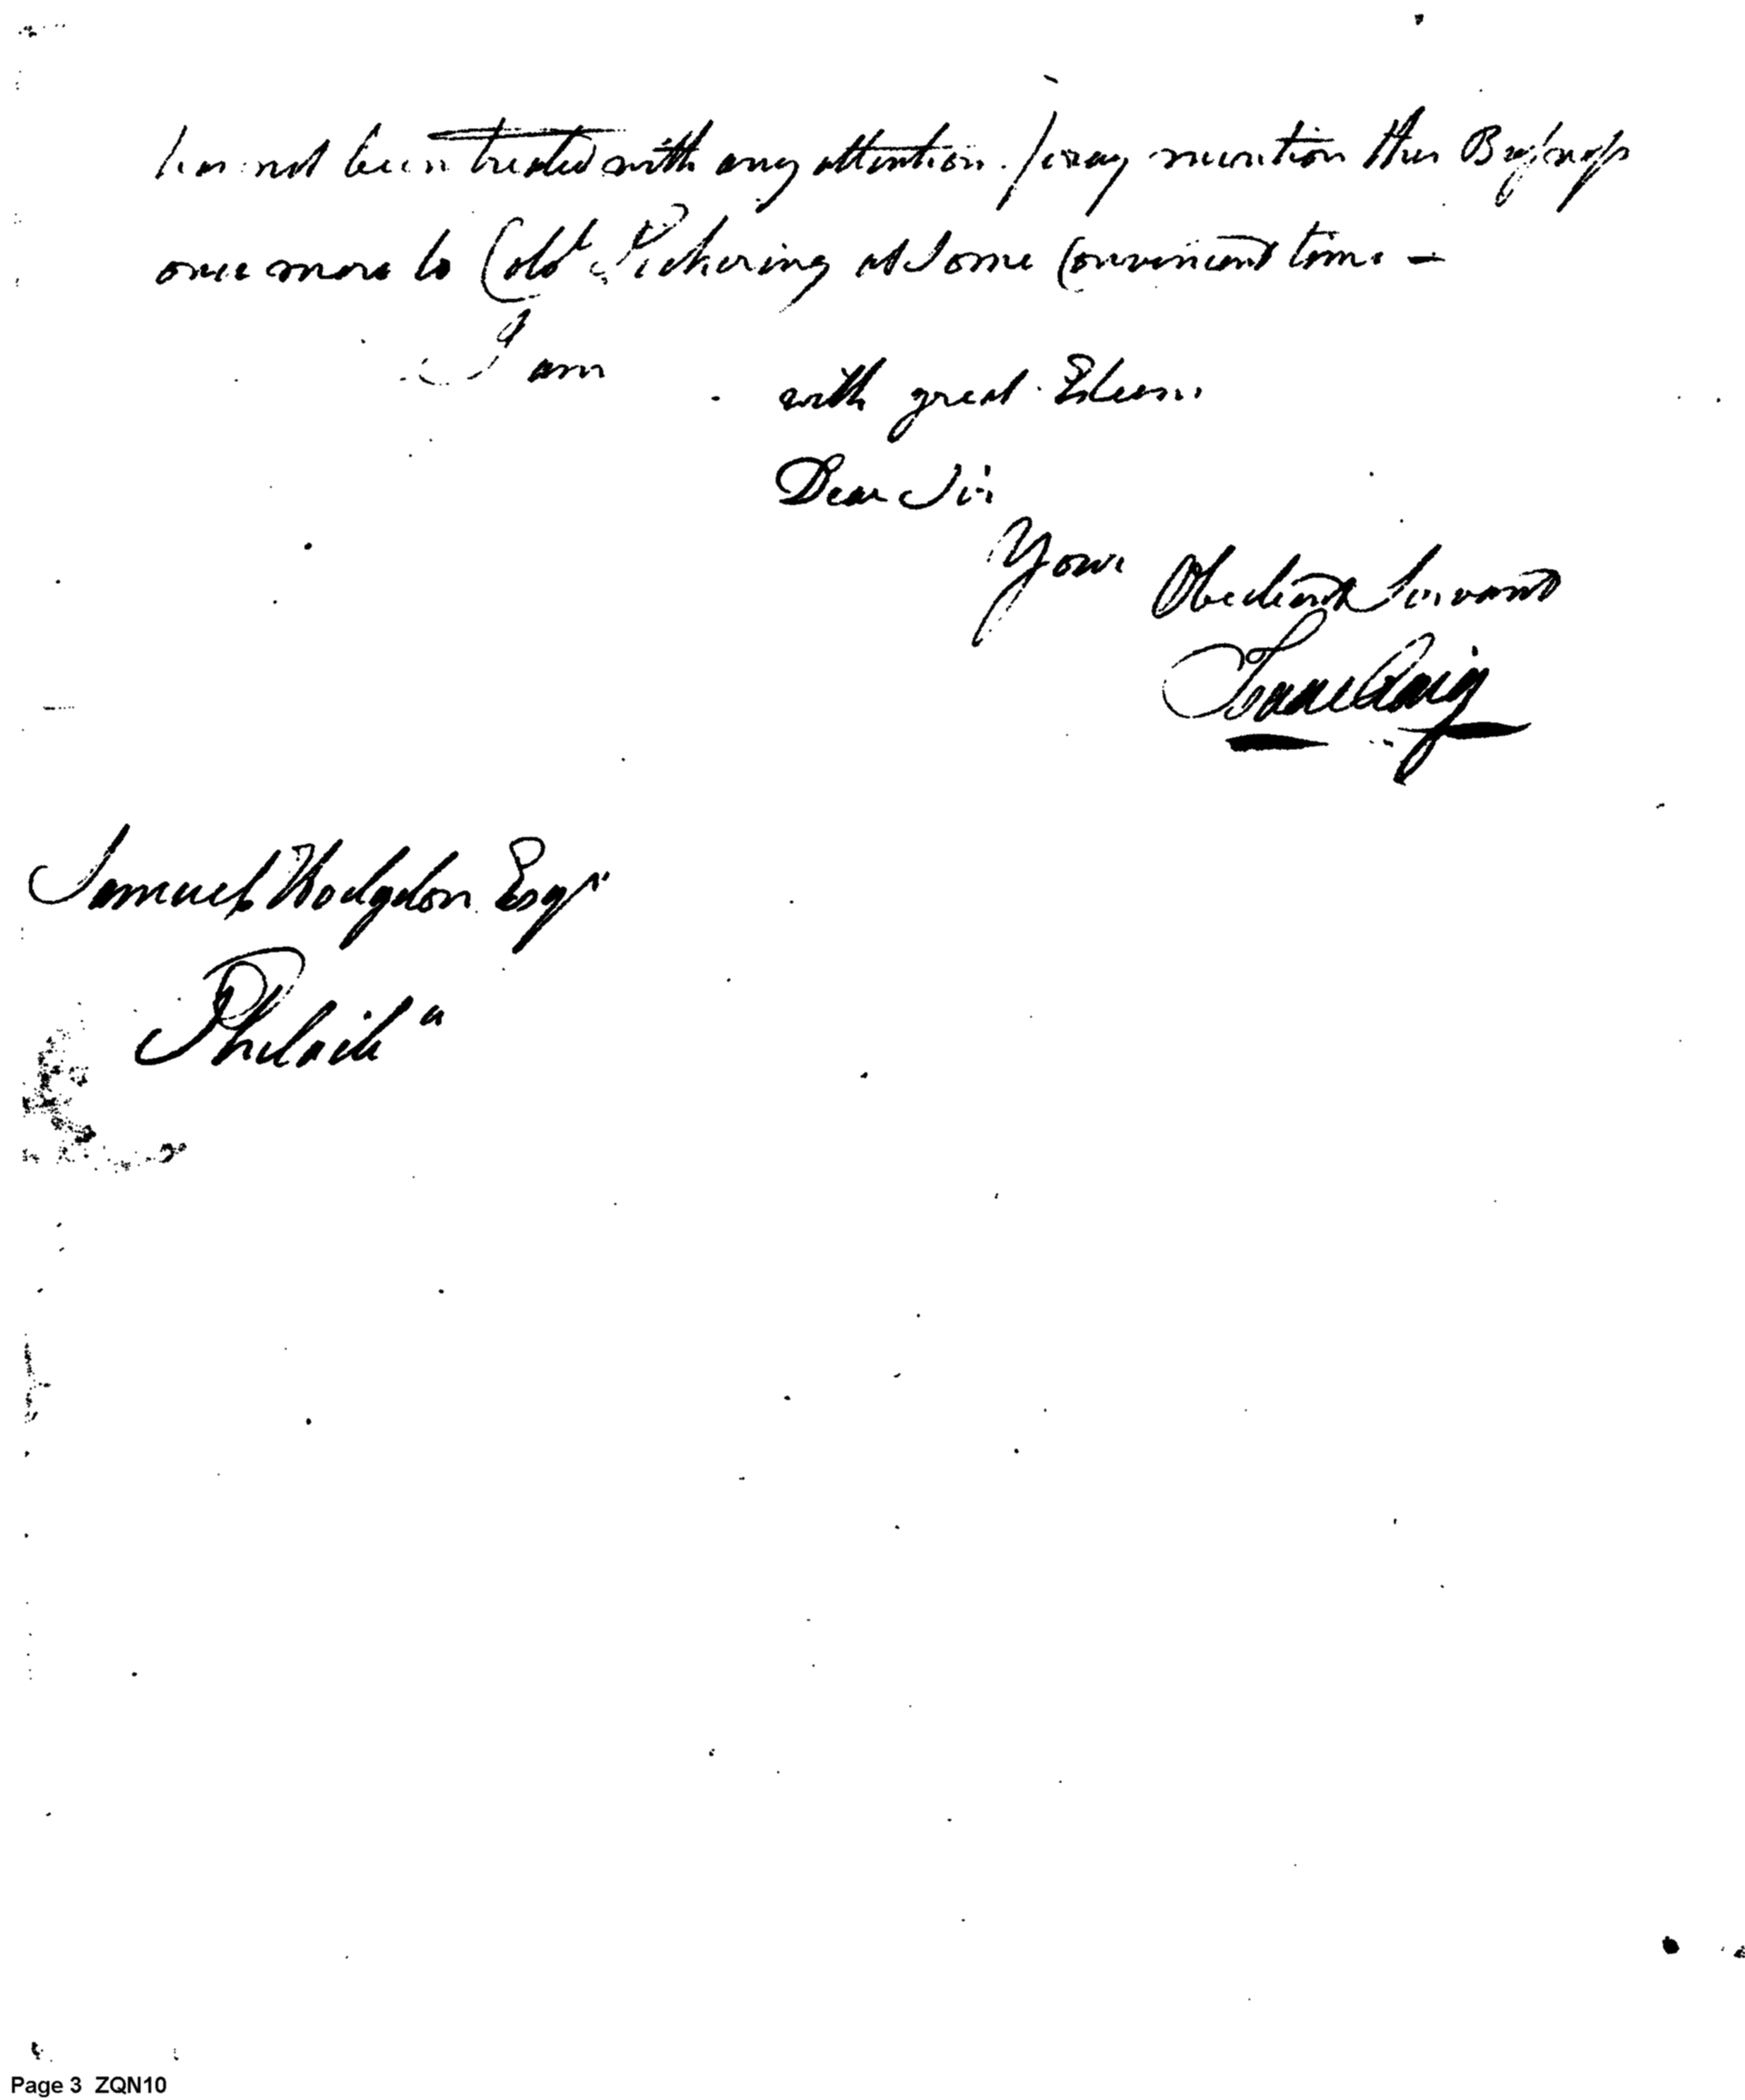 has not been treated with any attention. pray mention this Business
once more to Colo Pickering at some Convenient time —
I am
with great Esteem
Dear Sir
Your Obedient Servant
Isaac Craig
Samuel Hodgdon Esqr
Philada
Page 3 ZQN10